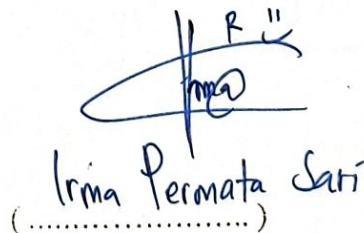 R
Irma
Irma Permata Sari
(......................)